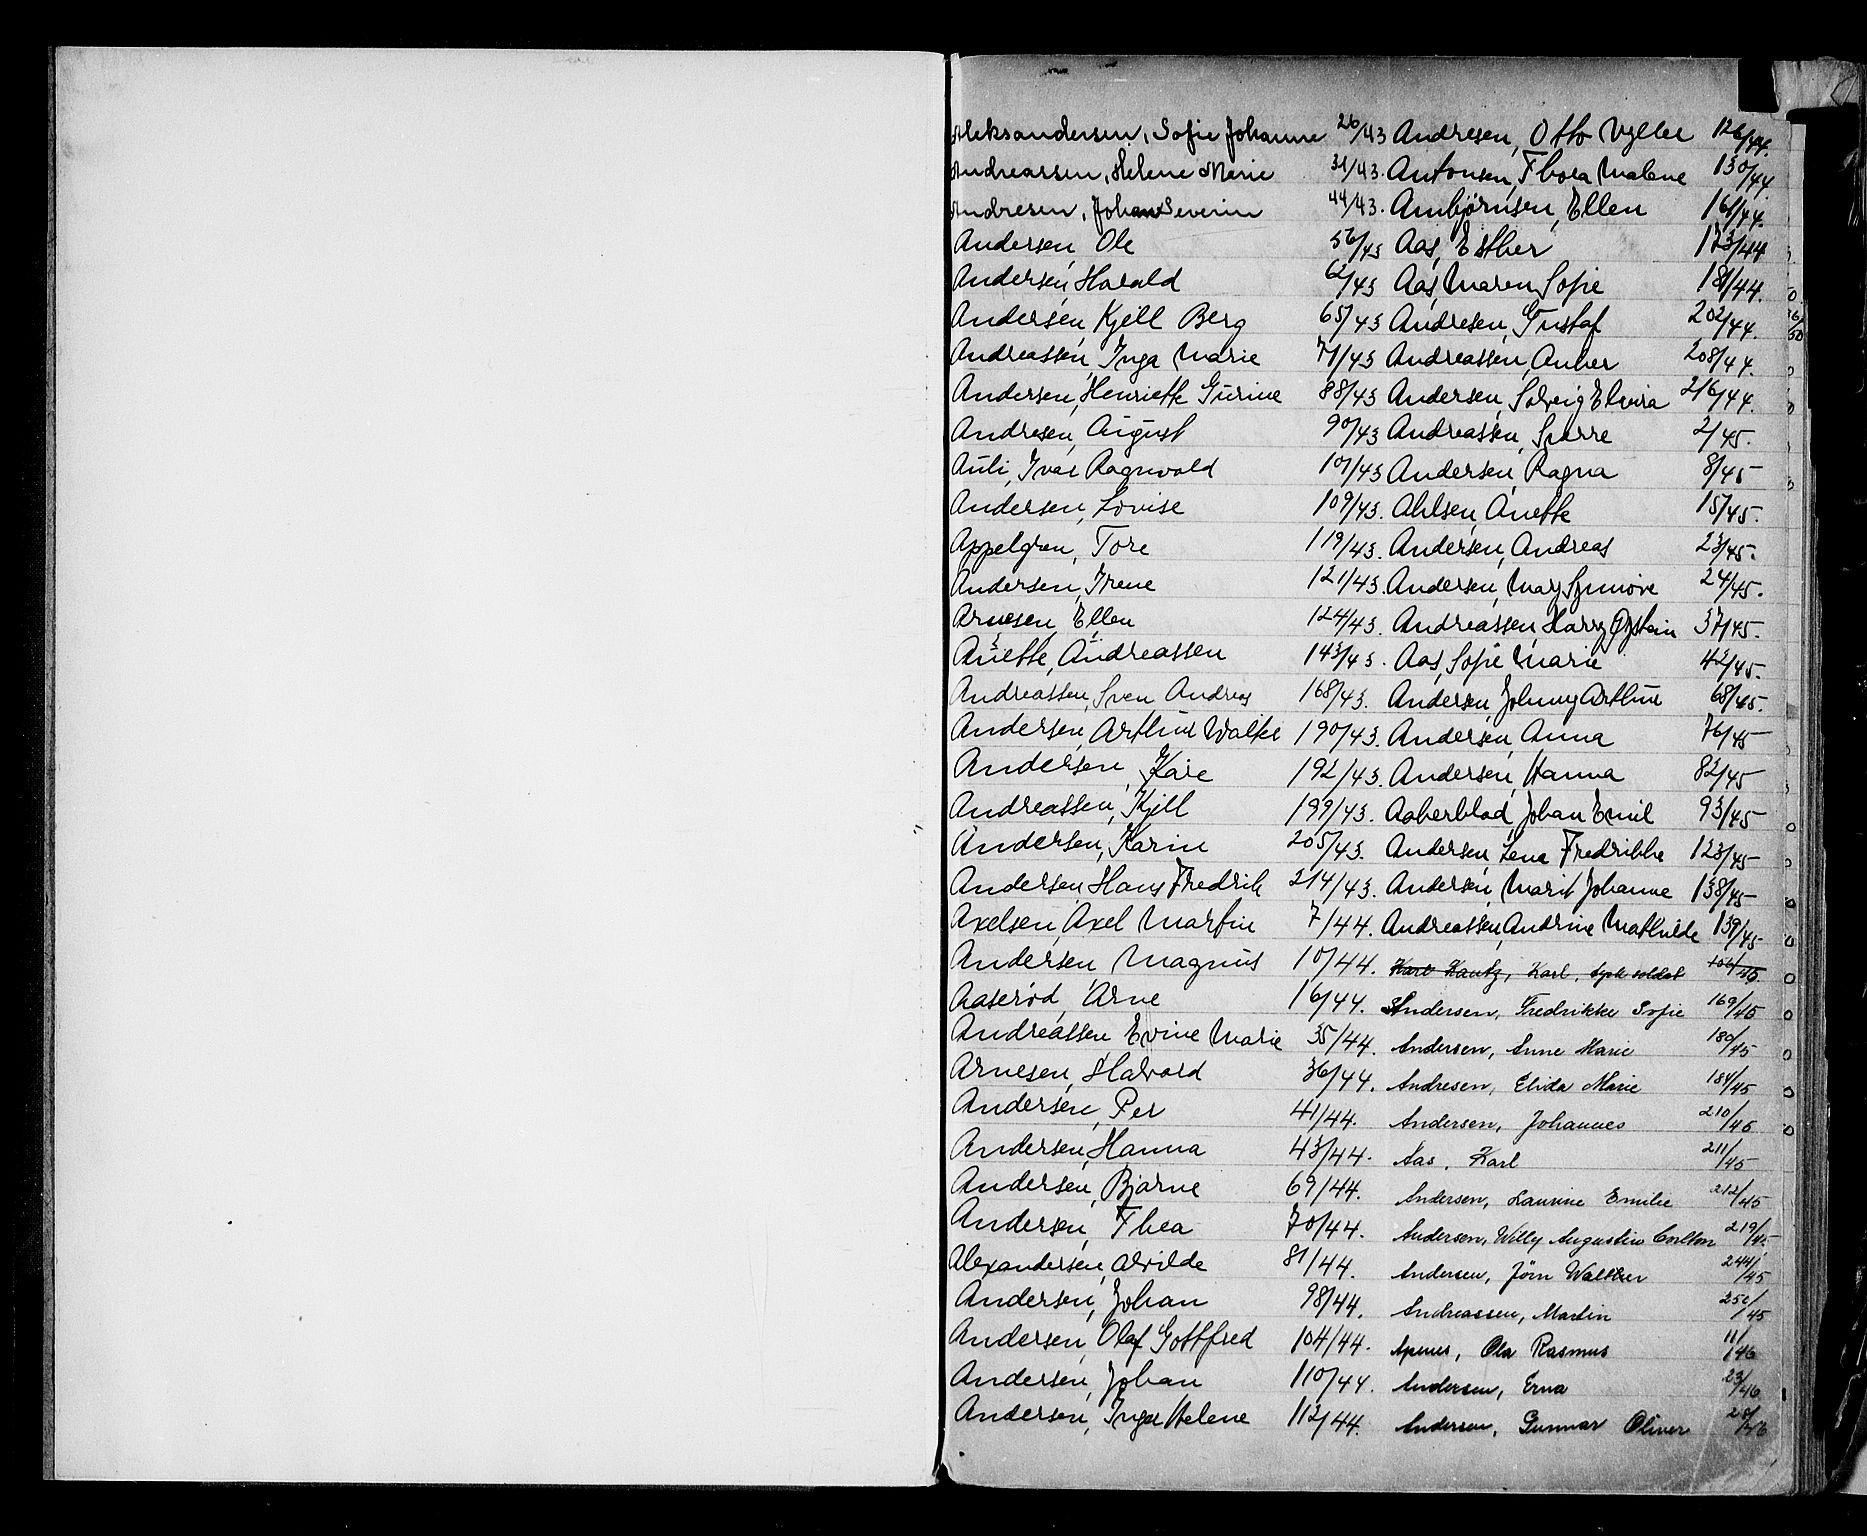 Aleksandersen, Sofie Johanne 26/43
Andreassen, Helene Marie 31/43.
Andresen, Johan Severin 44/43.
Andersen, Ole 56/43
Andersen, Harald 62/43
Andersen, Kjell Berg 65/43
Andreassen, Inga Marie 71/43
Andersen, Henriette Gurine 88/43
Andresen, August 90/43
Auli, Ivar Ragnvald 101/43
Andersen, Lovise 109/43.
Appelgren, Tore 119/43.
Andersen, Irene 121/43.
Arnesen, Ellen 124/43.
Anette, Andreassen 143/43.
Andreassen, Sven Andreas 168/43.
Andersen, Arthur Walter 190/43.
Andersen, Kåre 192/43.
Andreassen, Kjell 199/43.
Andersen, Karin 205/43.
Andersen Hans Fredrik 214/43.
Axelsen, Axel Martin 7/44.
Andersen Magnus 10/44.
Aaserød, Arne 16/44.
Andreassen Evine Marie 35/44.
Arnesen, Halvard 36/44.
Andersen, Per 41/44.
Andersen, Hanna 43/44.
Andersen, Bjarne 69/44.
Andersen, Thea 70/44.
Alexandersen, Alvilde 81/44.
Andersen, Johan 98/44.
Andersen, Olaf Gottfred 104/44.
Andersen, Johan 110/44.
Andersen, Inger Helene 112/44.
Andresen, Otto 126/44.
Antonsen, Thora Malene 130/44.
Arnbjørnsen, Ellen 161/44.
Aas, Esther 173/44
Aas, Maren Sofie 181/44.
Andresen, Gustaf 202/44.
Andreassen, Anker 208/44.
Andersen, Solveig Elvira 216/44.
Andreassen, Sverre 2/45.
Andersen, Ragna 8/45
Ahlsen, Anette 15/45.
Andersen, Andreas 23/45.
Andersen, Mary Synnøve 24/45.
Andreassen, Harry Øystein 37/45.
Aas, Sofie Marie 42/45.
Andersen, Johnny Arthur 68/45.
Andersen, Anna 76/45
Andersen, Hanna 82/45
Aakerblad, Johan Emil 93/45
Andersen, Lena Fredrikke 123/45
Andersen, Marit Johanne 138/45
Andreassen, Andrine Mathilde 139/45
Karl Kautz, Karl, tysk soldat 106/45
Andersen, Fredrikke Sofie 169/45
Andersen, Anne Marie 180/45
Andresen, Elida Marie 184/45
Andersen, Johannes 210/45
Aas, Karl 211/45
Andersen, Laurine Emilie 212/45
Andersen, Willy Augustin Carlton 219/45
Andersen, Jørn Walther 244/45
Andreassen, Martin 45
Apenes, Ola Rasmus 11/46
Andersen, Erna 23/46
Andersen, Gunnar Oliver 28/46